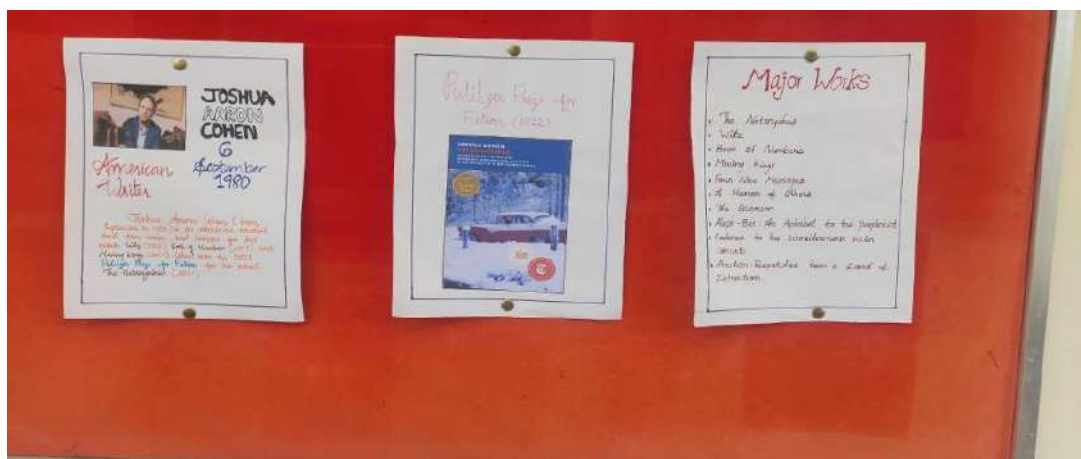 JOSHUA
AARON
COHEN
6
September
1980
American
Writer
Joshua Aaron Cohen (born
September 6, 1980) is an American novelist
and story writer, best known for his
novels Witz (2010), Book of Numbers (2015), and
Moving Kings (2017). Cohen won the 2022
Pulitzer Prize for Fiction for his novel
The Netanyahus (2021).
Pulitzer Prize for
Fiction (2022)
JOSHUA COHEN
THE NETANYAHUS
Major Works
• The Netanyahus
• Witz
• Book of Numbers
• Moving Kings
• Four New Messages
• A Heaven of Others
• The Quorum
• Aleph-Bet: An Alphabet for the Perplexed
• Cadenza for the Schneidermann Violin
Concerto
• Attention: Dispatches from a Land of
Distraction